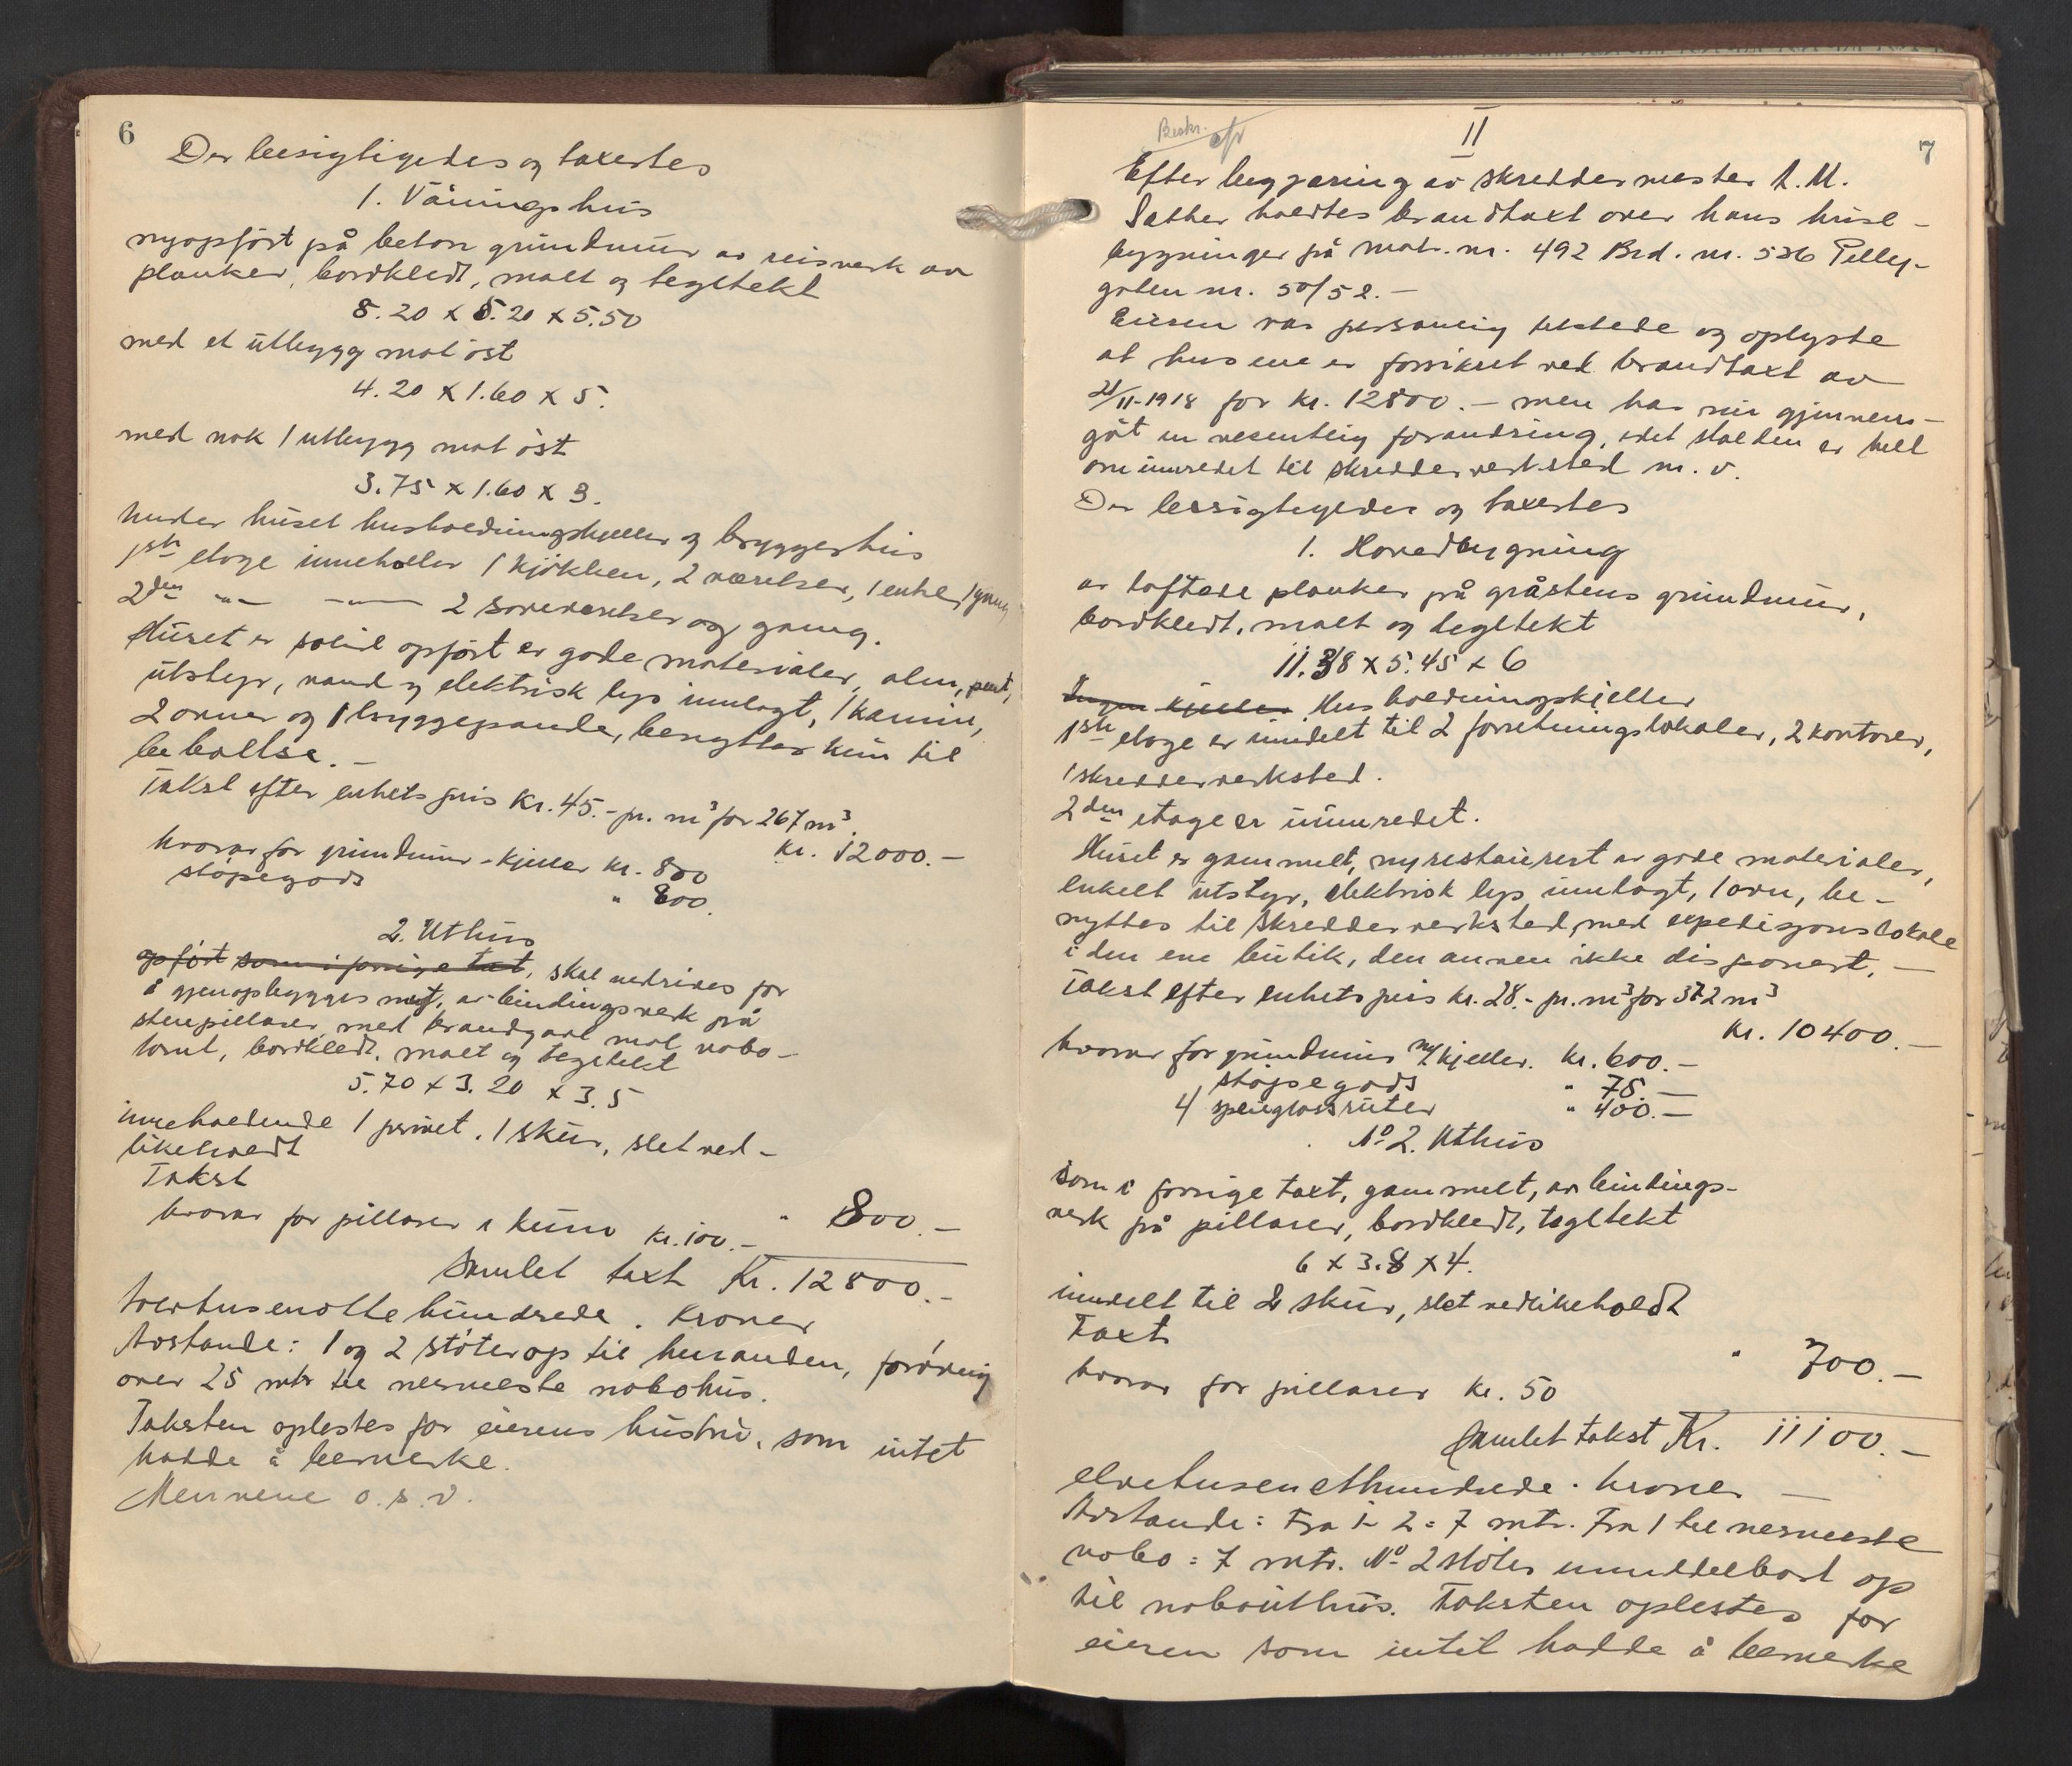 6
Der besigtigedes og taxertes
1. Våningshus
nyopført på beton grundmur av reisverk av
planker, bordkledt, malt og tegltekt
8.20 x 8.20 x 5.50
med et utbygg mot øst
4.20 x 1.60 x 5.
med nok 1 utbygg mot øst
3.75 x 1.60 x 3.
Under huset husholdningskjeller og bryggerhus
1ste etage inneholder 1 kjøkken, 2 værelser, 1 entre, 1 gang
2den -"- -"- 2 soveværelser og gang.
Huset er solid opført av gode materialer, alm, pent,
utstyr, vand og elektrisk lys innlagt, 1 kamin,
2 ovner og 1 bryggepande, benyttes kun til
beboelse. -
Takst efter enhetspris Kr. 45.- pr. m³ for 267 m³.
Kr. 12000.-
hvorav for grundmur - kjeller kr. 800
støpegods " 800.
2. Uthus
opført som i forrige taxt, skal nedrives for
å gjenopbygges nyt, av bindingsverk på
stenpillarer med brandgavl mot nabo-
tomt, bordkledt, malt og tegltekt
5.70 x 3.20 x 3.5
inneholdende 1 privet, 1 skur, slet ved-
likeholdt
Takst
" 800.-
hvorav for pillarer i kum kr. 100.-
Samlet taxt Kr. 12800.-
tolvtusenottehundrede . Kroner
Avstande: 1 og 2 støter op til hinanden, forøvrig
over 25 mtr til nermeste nabohus.
Taksten oplestes for eierens hustru, som intet
hadde å bemerke.
Mennene o. s. v.
Beskr. afr
II
7
Efter begjæring av skreddermester A. M.
Sæther holdtes brandtaxt over hans huse-
bygninger på Matr. nr. 492 Brd. nr. 536 Tilley-
gaten nr. 50/52.-
Eieren var personlig tilstede og oplyste
at husene er forsikret ved brandtaxt av
21/11-1918 for kr. 12800.- men har nu gjennem-
gåt en vesentlig forandring, idet stalden er helt
om innredet til skredderverksted m. v.
Der besigtigedes og taxertes
1. Hovedbygning
av laftede planker på gråstens grundmur,
bordkledt, malt og tegltekt
11.38 x 5.45 x 6
Ingen kjeller Husholdningskjeller
1ste etage er inndelt til 2 forretningslokaler, 2 kontorer,
1 skredderverksted.
2den etage er uinnredet.
Huset er gammelt, nyrestaurert av gode materialer,
enkelt utstyr, elektrisk lys innlagt, 1 ovn, be-
nyttes til skredderverksted med expedisjonslokale
i den ene butik, den annen ikke disponert. -
Takst efter enhetspris kr. 28.- pr. m³ for 372 m³
Kr. 10400.-
hvorav for grundmur m/ kjeller. kr. 600.-
støpegods " 75.-
4 speilglassruter " 400.-
No 2. Uthus
som i forrige taxt, gammelt, av bindings-
verk på pillarer, bordkledt, tegltekt
6 x 3.8 x 4.
inndelt til 2 skur, slet vedlikeholdt
Taxt
" 700.-
hvorav for pillarer kr. 50
Samlet takst Kr. 11100.-
elvetusenethundrede . kroner -
Avstande: Fra 1 - 2 = 7 mtr. Fra 1 til nermeste
nabo = 7 mtr. No 2 støter umiddelbart op
til nabouthus. Taksten oplestes for
eieren som intet hadde å bemerke